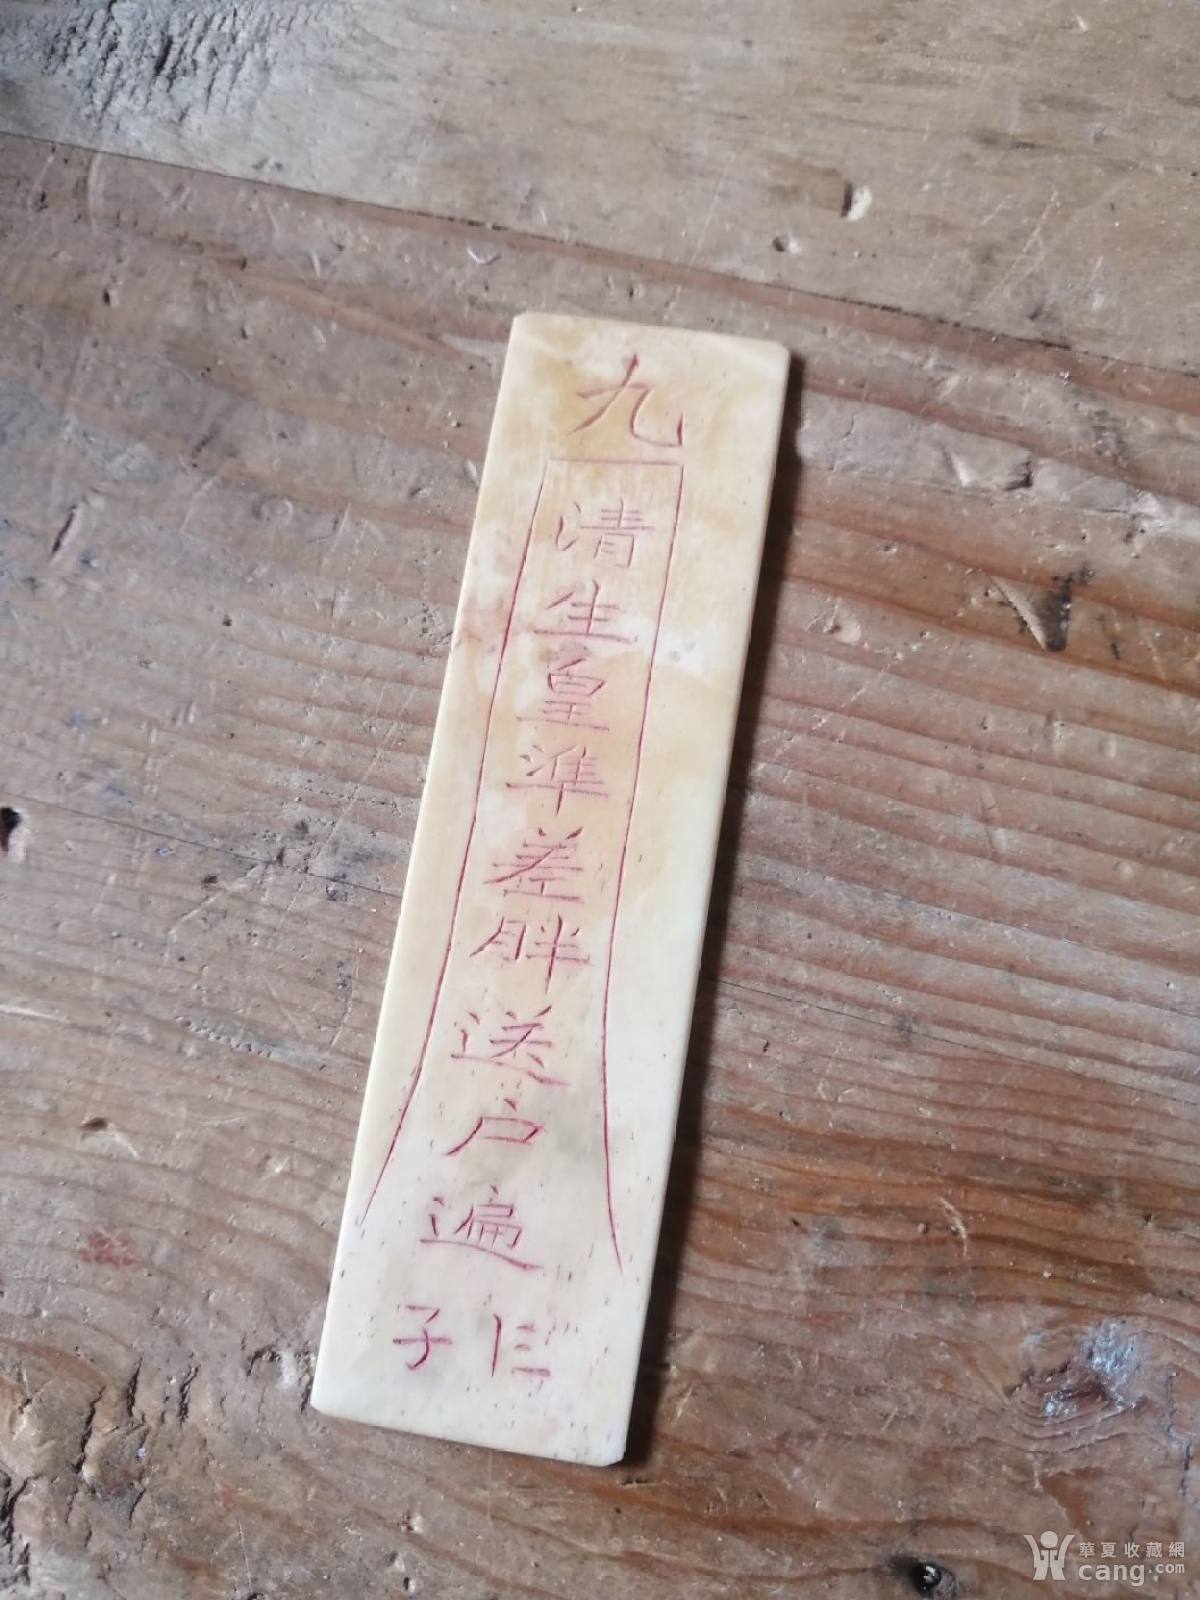 九
清生皇準差胖送户遍
子 仨
華夏收藏網
cang.com